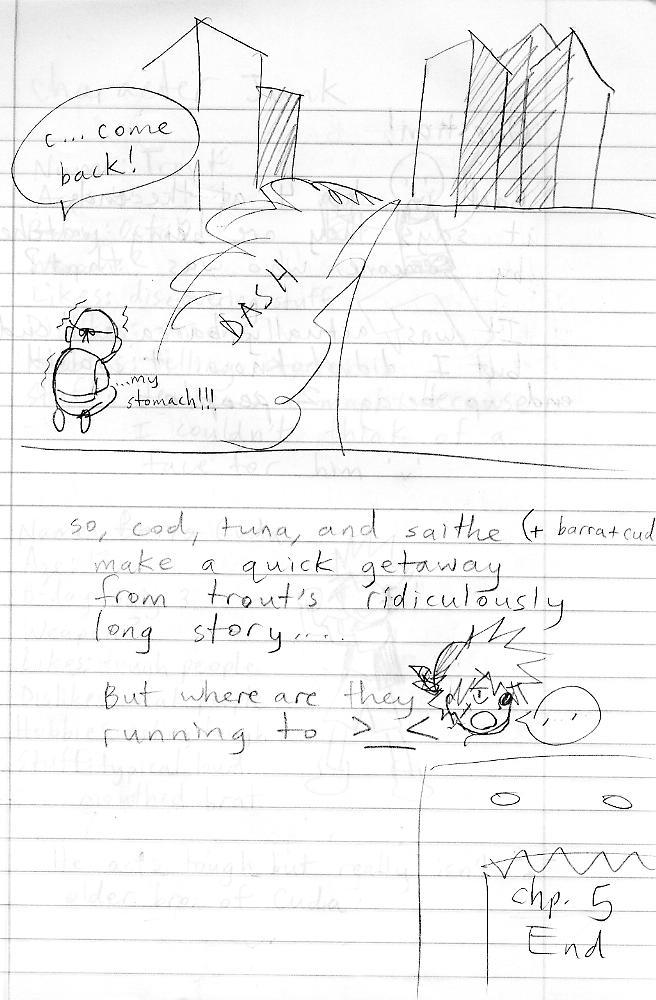 c... come
back!
DASH
...my
stomach!!!
so, cod, tuna, and saithe (+ barra+cud
make a quick getaway
from trout's ridiculously
long story....
But where are they
running to >_<
...
chp. 5
End